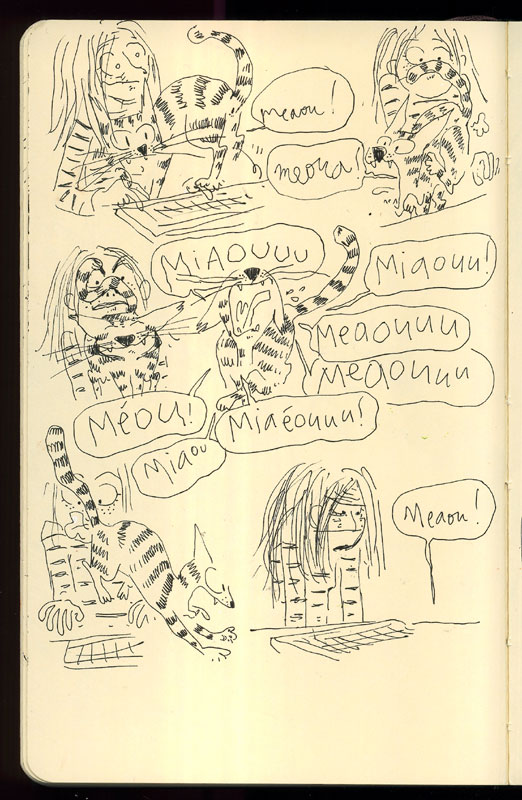 meaou!
meoua!
MiAOUUU
Miaouu!
Meaouuu
Meaouuu
Méou!
Miaéouuu!
Miaou
Meaou!